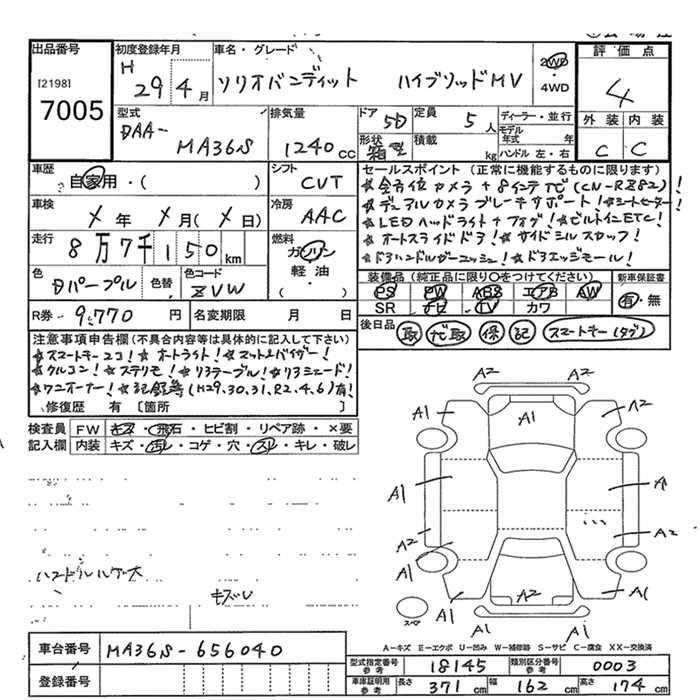 出品番号
[2198]
7005
初度登録年月
H 29 4月
車名・グレード
ソリオバンディット ハイブリッドMV
2WD
・
4WD
評価点
4
外装 内装
C C
型式
DAA-
MA36S
排気量
1240cc
ドア 5D
形状 箱型
定員 5人
積載 kg
ディーラー・並行
モデル年式 年
ハンドル 左・右
車歴
自家用・( )
シフト
CVT
セールスポイント (正常に機能するものに限ります)
☆全方位カメラ+8インチナビ(CN-RZ82)!
☆デュアルカメラブレーキサポート!☆シートヒーター!
☆LEDヘッドライト+フォグ!☆ビルトインETC!
☆オートスライドドア!☆サイドミルスカッフ!
☆ドアハンドルガーニッシュ!☆ドアエッジモール!
車検
メ年 メ月(メ日)
冷房
AAC
走行
8万7千150km
燃料
ガソリン
軽油
( )
色
Dパープル
色替
色コード
ZVW
R券 9.770円
名変期限 月 日
装備品(純正品に限り○をつけてください)
PS PW ABS エアB AW
SR ナビ TV カワ
新車保証書
有・無
後日品 取 代取 保 記 スマートキー(タグ)
注意事項申告欄(不具合内容等は具体的に記入して下さい)
☆スマートキー2コ!☆オートライト!☆マット&バイザー!
☆クルコン!☆ステリモ!☆リヤテーブル!☆リヤシェード!
☆ワンオーナー!☆記録簿(H29.30.31.R2.4.6)有!
修復歴 有 [箇所 ]
検査員記入欄
FW キズ・飛石・ヒビ割・リペア跡・×要
内装 キズ・汚レ・コゲ・穴・スレ・キレ・破レ
ハンドルハゲ大
キズU
A2
A1 A1 A2
A1 A1
A2 A2
A1 A2 A1
A1
A1 A1
スペア
A-キズ E-エクボ U-凹み W-補修跡 S-サビ C-腐食 XX-交換済
車台番号 MA36S-656040
登録番号
型式指定番号参考 18145 類別区分番号参考 0003
車庫証明用参考 長さ 371cm 幅 162cm 高さ 174cm